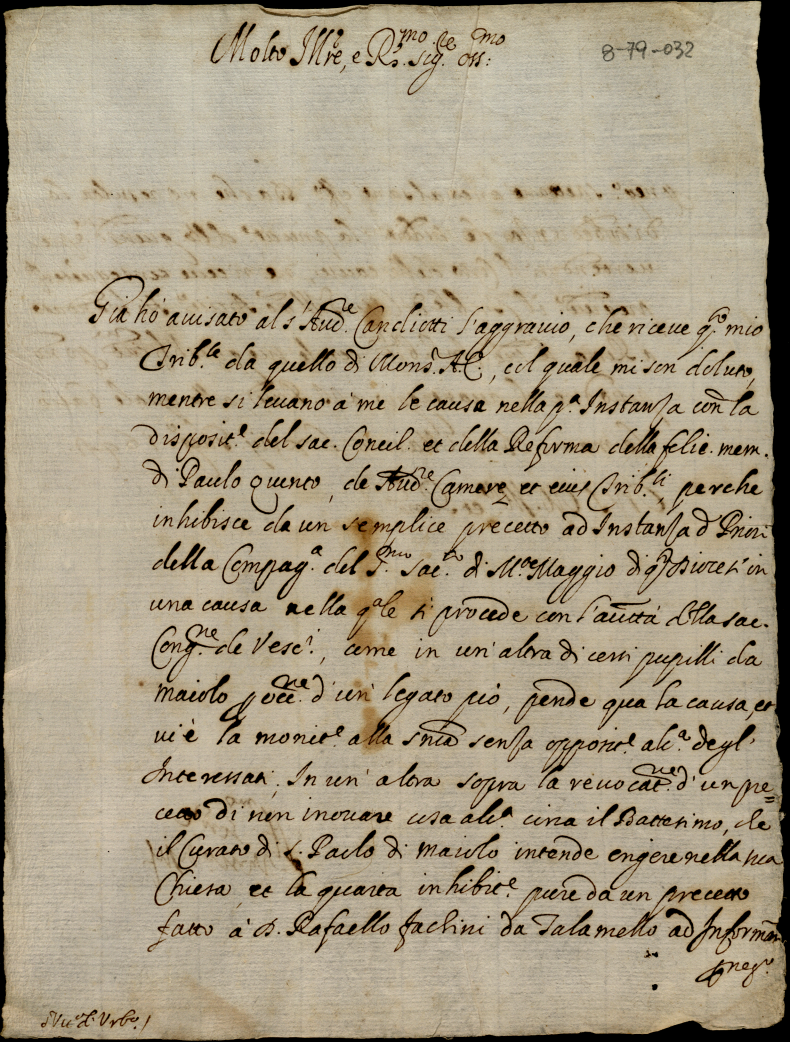 Molto Ill.re, e R.mo sig.re oss.mo
8-79-032
Già hò auisato al s.r Aud.re Candiotti l'aggrauio, che riceue q.to mio
Trib.le da quello di Mons.r A.C., col quale mi son doluto,
mentre si leuano à me le cause nella p.a Instanza con la
disposit.e del sac. Concil. et della Reforma della felic. mem.
di Paulo quinto, de Aud.re Camere et eius Trib.li, perche
inhibisce da un semplice precetto ad Instanza d Priori
della Compag.a del S.mo Sac.to di M.te Maggio di q.ta Diocesi in
una causa nella q.le si procede con l'autt.à della sac.
Cong.ne de Vesc.i, come in un'altra di certi pupilli da
maiolo d'un legato pio, pende qua la causa, et
ui è la monit.e alla snia senza opposit.e alc.a degl'
Interessati, In un'altra sopra la reuocat.ne d'un pre=
cetto di non inouare cosa alc.a circa il Battesimo, che
il Curato di S. Paolo di maiolo intende erigere nella sua
Chiesa, et la quarta inhibit.e pure da un precetto
fatto à D. Rafaello fachini da Talamello ad Informan